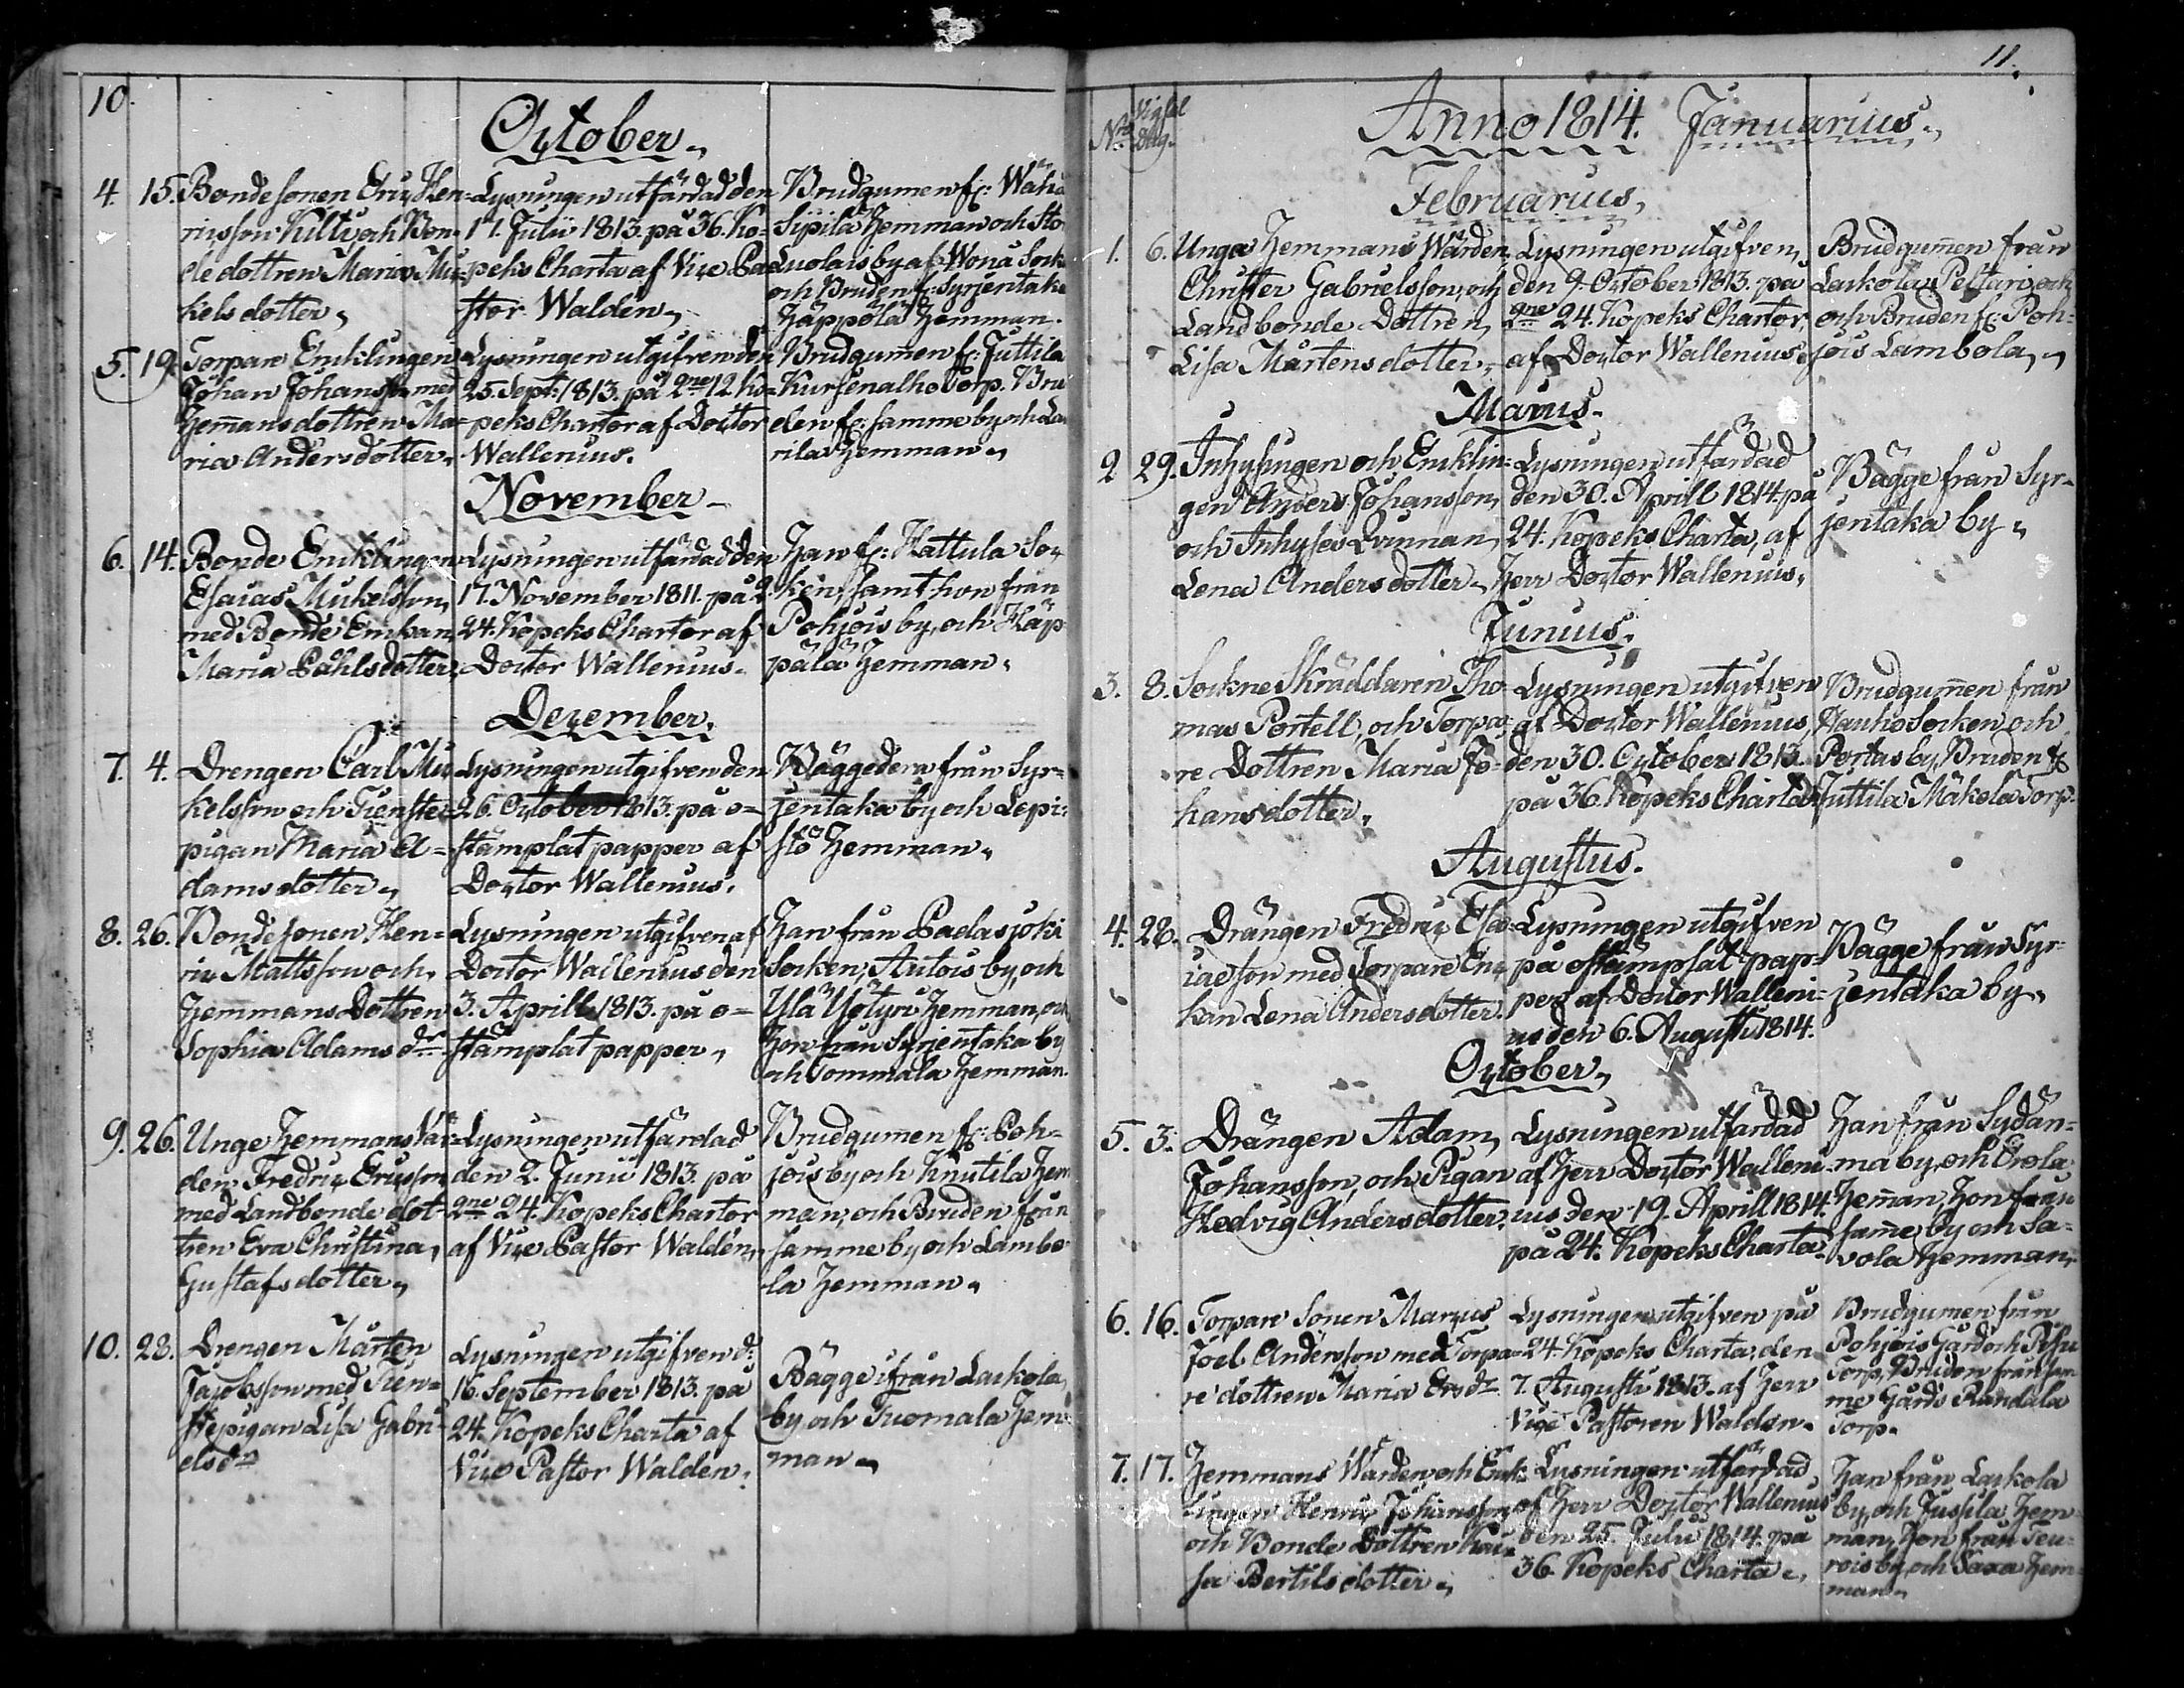 10.
October
4. 15. Bondesonen Eric Hen-
ricsson Kiltti och Bon-
de dottren Maria Mi-
kels dotter,
Lysningen utfärdad den
17. Julii 1813. på 36. Ko-
peks Charta af Vice Pa-
stor Waldén,
Brudgumen fr: Wähä
Sipilä Hemman och
Luolais by af Wonå Sock
och Bruden fr: Syrjentaka
Häppölä Hemman.
5. 19. Torpare Encklingen
Johan Johansson med
Hemans dottren Ma-
ria Anders dotter,
Lysningen utgifven den
25. Sept: 1813. på 2ne 12 Ko-
peks Chartor af Doctor
Wallenius.
Brudgumen fr: Juttila
Kursenalho Torp. Bru
den fr: samme by och
rila Hemman,
November
6. 14. Bonde Encklingen
Esaias Mickelsson,
med Bonde Enckan,
Maria Påhlsdotter,
Lysningen utfärdad den
17. November 1811. på 2.
24. Kopeks Chartor af
Doctor Wallenius.
Han fr: Hattula So-
ken, samt hon från
Pohjois by, och Häp-
pälä Hemman,
December.
7. 4. Drengen Carl Mi-
kelsson och Tienste-
pigan Maria A-
dams dotter,
Lysningen utgifven den
26. October 1813. på o-
stämplat papper af
Doctor Wallenius.
Bäggedera från Syr-
jentaka by och Lepi-
stö Hemman,
8. 26. Bondesonen Hen-
ric Mattsson och
Hemmans Dottren
Sophia Adams dr
Lysningen utgifven af
Doctor Wallenius den
3. Aprill 1813. på o-
stämplat papper,
Han från Padasjoki
Socken, Autois by, och
Ylä Yötyri Hemman, och
Hon från Syrientaka by
och Tommala Hemman.
9. 26. Unge Hemmans Vär-
den Fredric Ericsson
med Landbonde dot-
tren Eva Christina
Gustafs dotter,
Lysningen utfärdad
den 2. Junii 1813. på
2ne 24. Kopeks Chartor
af Vice Pastor Waldén,
Brudgumen fr: Poh-
jois by och Knutila Hem
man, och Bruden från
samme by och Lambo-
la Hemman,
10. 28. Drengen Mårten
Jacobsson med Tien-
stepigan Lisa Gabri-
elsdr
Lysningen utgifven d:
16. September 1813. på
24. Kopeks Charta af
Vice Pastor Waldén.
Bägge ifrån Laskola
by och Tuomala Hem-
man
11.
No Vigsel
dag.
Anno 1814. Januarius.
Februarius,
1. 6. Unga Hemmans Wärden
Christer Gabrielsson, och
Landbonde Dottren
Lisa Mårtens dotter,
Lysningen utgifven
den 9. October 1813. på
2ne 24. Kopeks Chartor,
af Doctor Wallenius,
Brudgumen från
Laskola Peltari, och
och Bruden fr: Poh-
jois Lambola,
Marius.
2 29. Inhysingen och Encklin-
gen Anders Johansson,
och Inhyses Qvinnan
Lena Anders dotter,
Lysningen utfärdad
den 30. Aprill 1814. på
24. Kopeks Charta, af
Herr Doctor Wallenius,
Bägge från Syr-
jentaka by,
Junius.
3. 8. Sockne Skräddaren Tho-
mas Portell, och Torpa-
re Dottren Maria Jo-
hans dotter,
Lysningen utgifven
af Doctor Wallenius,
den 30. October 1813.
på 36. Kopeks Charta
Brudgumen från
Hauho Socken och
Portas by, Bruden fr
Juttila Mäkelä Torp.
Augustus.
4. 28. Drängen Fredric Esa-
iaesson med Torpare En-
kan Lena Andersdotter.
Lysningen utgifven
på ostämplat pap-
per af Doctor Walleni-
us den 6. Augusti 1814.
Bägge från Syr-
jentaka by,
October,
5. 3. Drängen Adam
Johansson, och Pigan
Hedvig Anders dotter.
Lysningen utfärdad
af Herr Doctor Walleni-
us den 19. Aprill 1814.
på 24. Kopeks Charta.
Han från Sydän-
ma by, och Erola
Heman, Hon från
same by och Sa-
vola Hemman,
6. 16. Torpare Sonen Marcus
Joel Andersson med Torpa-
re dottren Maria Ersdr
Lysningen utgifven på
24. Kopeks Charta, den
7. Augusti 1813. af Herr
Vice Pastoren Waldén.
Brudgumen från
Pohjois Gård och
Torp, Bruden från sam
me Gårds Randala
Torp.
7. 17. Hemmans Wärden och Enck-
lingen Henric Johansson
och Bonde Dottren Kai-
sa Bertils dotter,
Lysningen utfärdad
af Herr Doctor Wallenius
den 25. Julii 1814. på
36. Kopeks Charta,
Han från Laskola
by, och Jussila Hem-
man, Hon från Teu-
rois by, och Saxa Hem-
man,